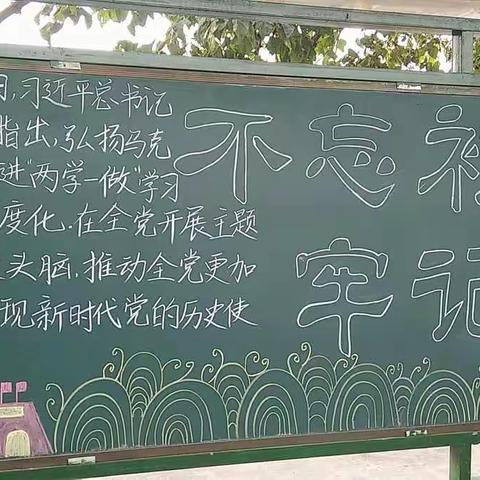 月,习近平总书记
指出,弘扬马克
进"两学一做"学习
度化.在全党开展主题
头脑,推动全党更加
现新时代党的历史使
不忘初
牢记